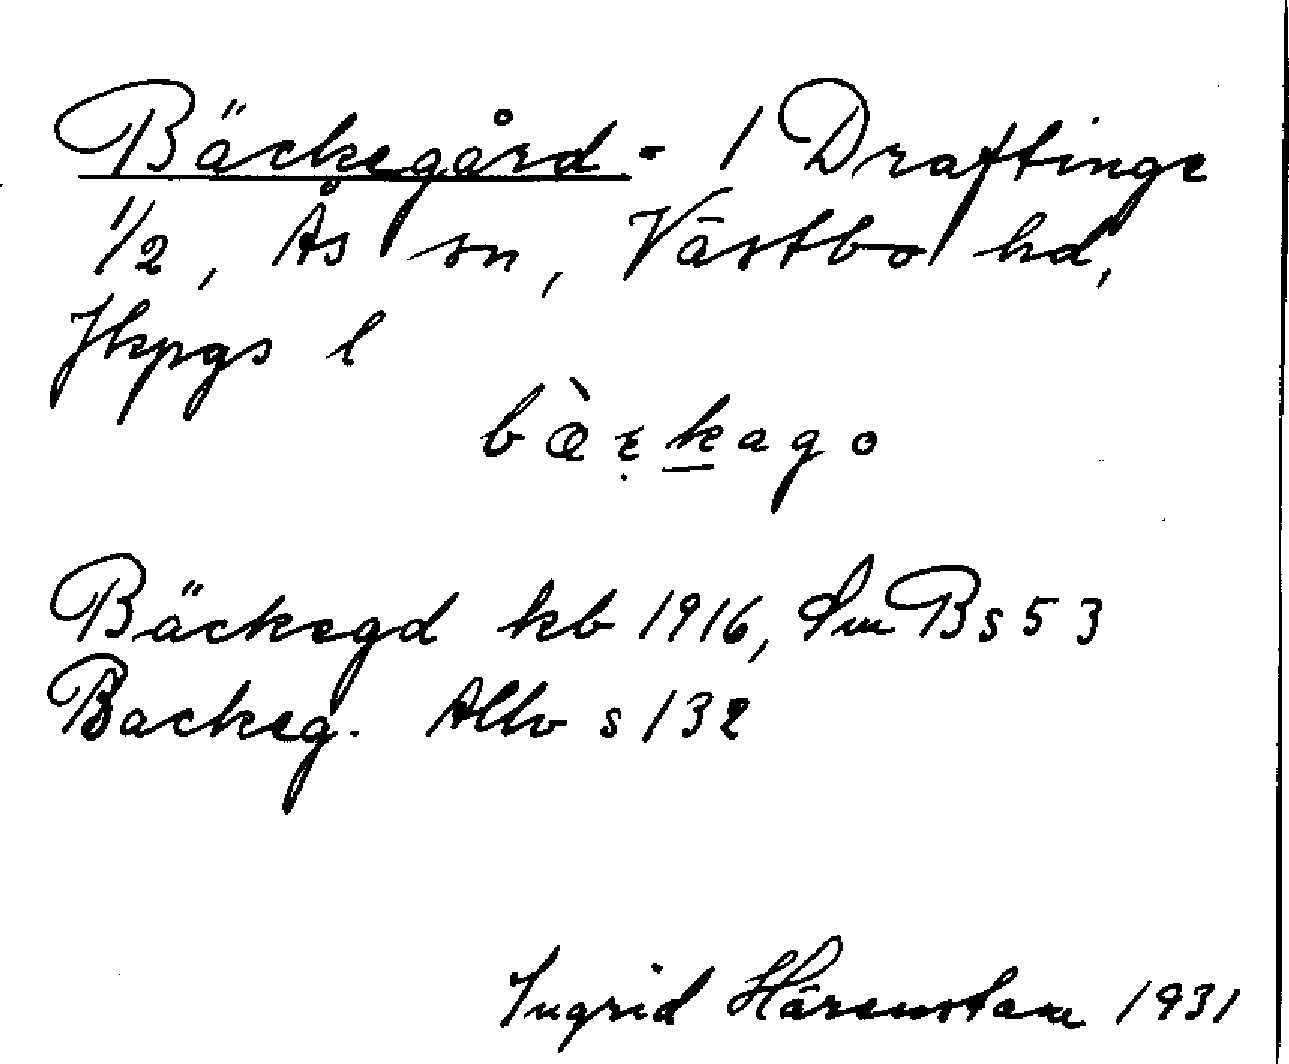 Bäckegård - 1 Draftinge
1/2, Ås sn, Västbo hd,
Jkpgs l
Bäckegd kb 1916, SmB s 53
Backeg. Allb s 132
Ingrid Härenstam 1931